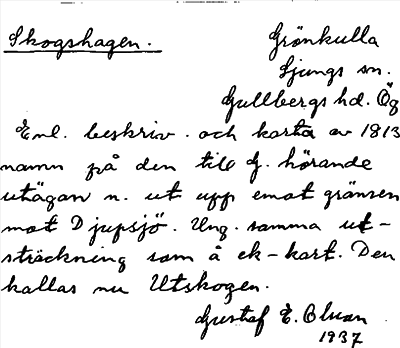 Skogshagen.
Grönkulla
Ljungs sn.
Gullbergs hd. Ög
Enl. beskriv. och karta av 1813
namn på den till G. hörande
utägan n. ut upp emot gränsen
mot Djupsjö. Ung. samma ut-
sträckning som å ek-kart. Den
kallas nu Utskogen.
Gustaf E. Olson
1937